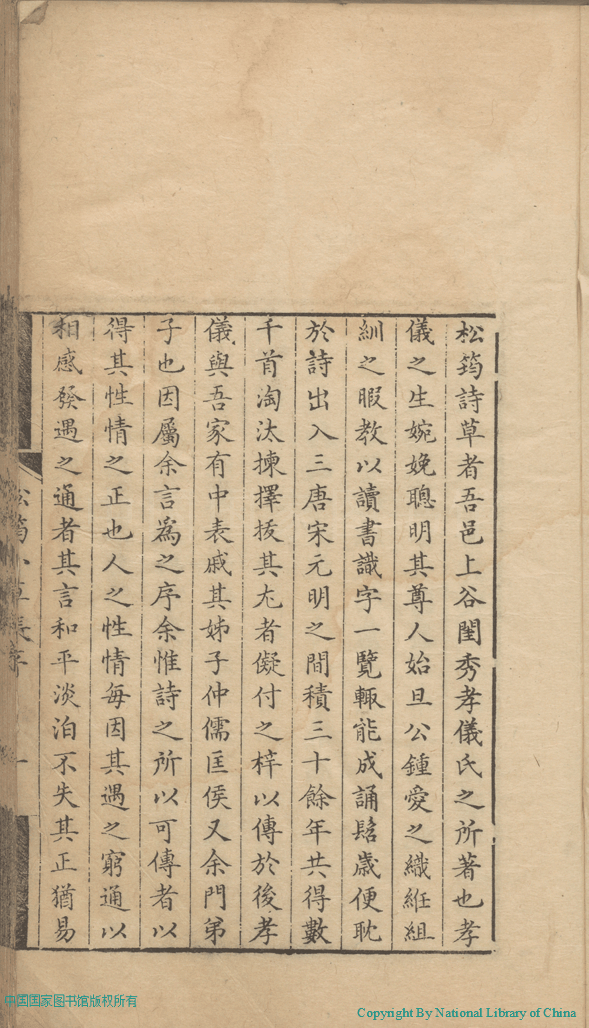 松筠詩草者吾邑上谷閨秀孝儀氏之所著也孝
儀之生婉娩聰明其尊人始旦公鍾愛之織絍組
紃之暇教以讀書識字一覽輒能成誦髫歲便耽
於詩出入三唐宋元明之間積三十餘年共得數
千首淘汰揀擇拔其尤者儗付之梓以傳於後孝
儀與吾家有中表戚其姊子仲儒匡侯又余門弟
子也因屬余言為之序余惟詩之所以可傳者以
得其性情之正也人之性情每因其遇之窮通以
相感發遇之通者其言和平淡泊不失其正猶易
松筠小草 張序 一
中国国家图书馆版权所有
Copyright By National Library of China